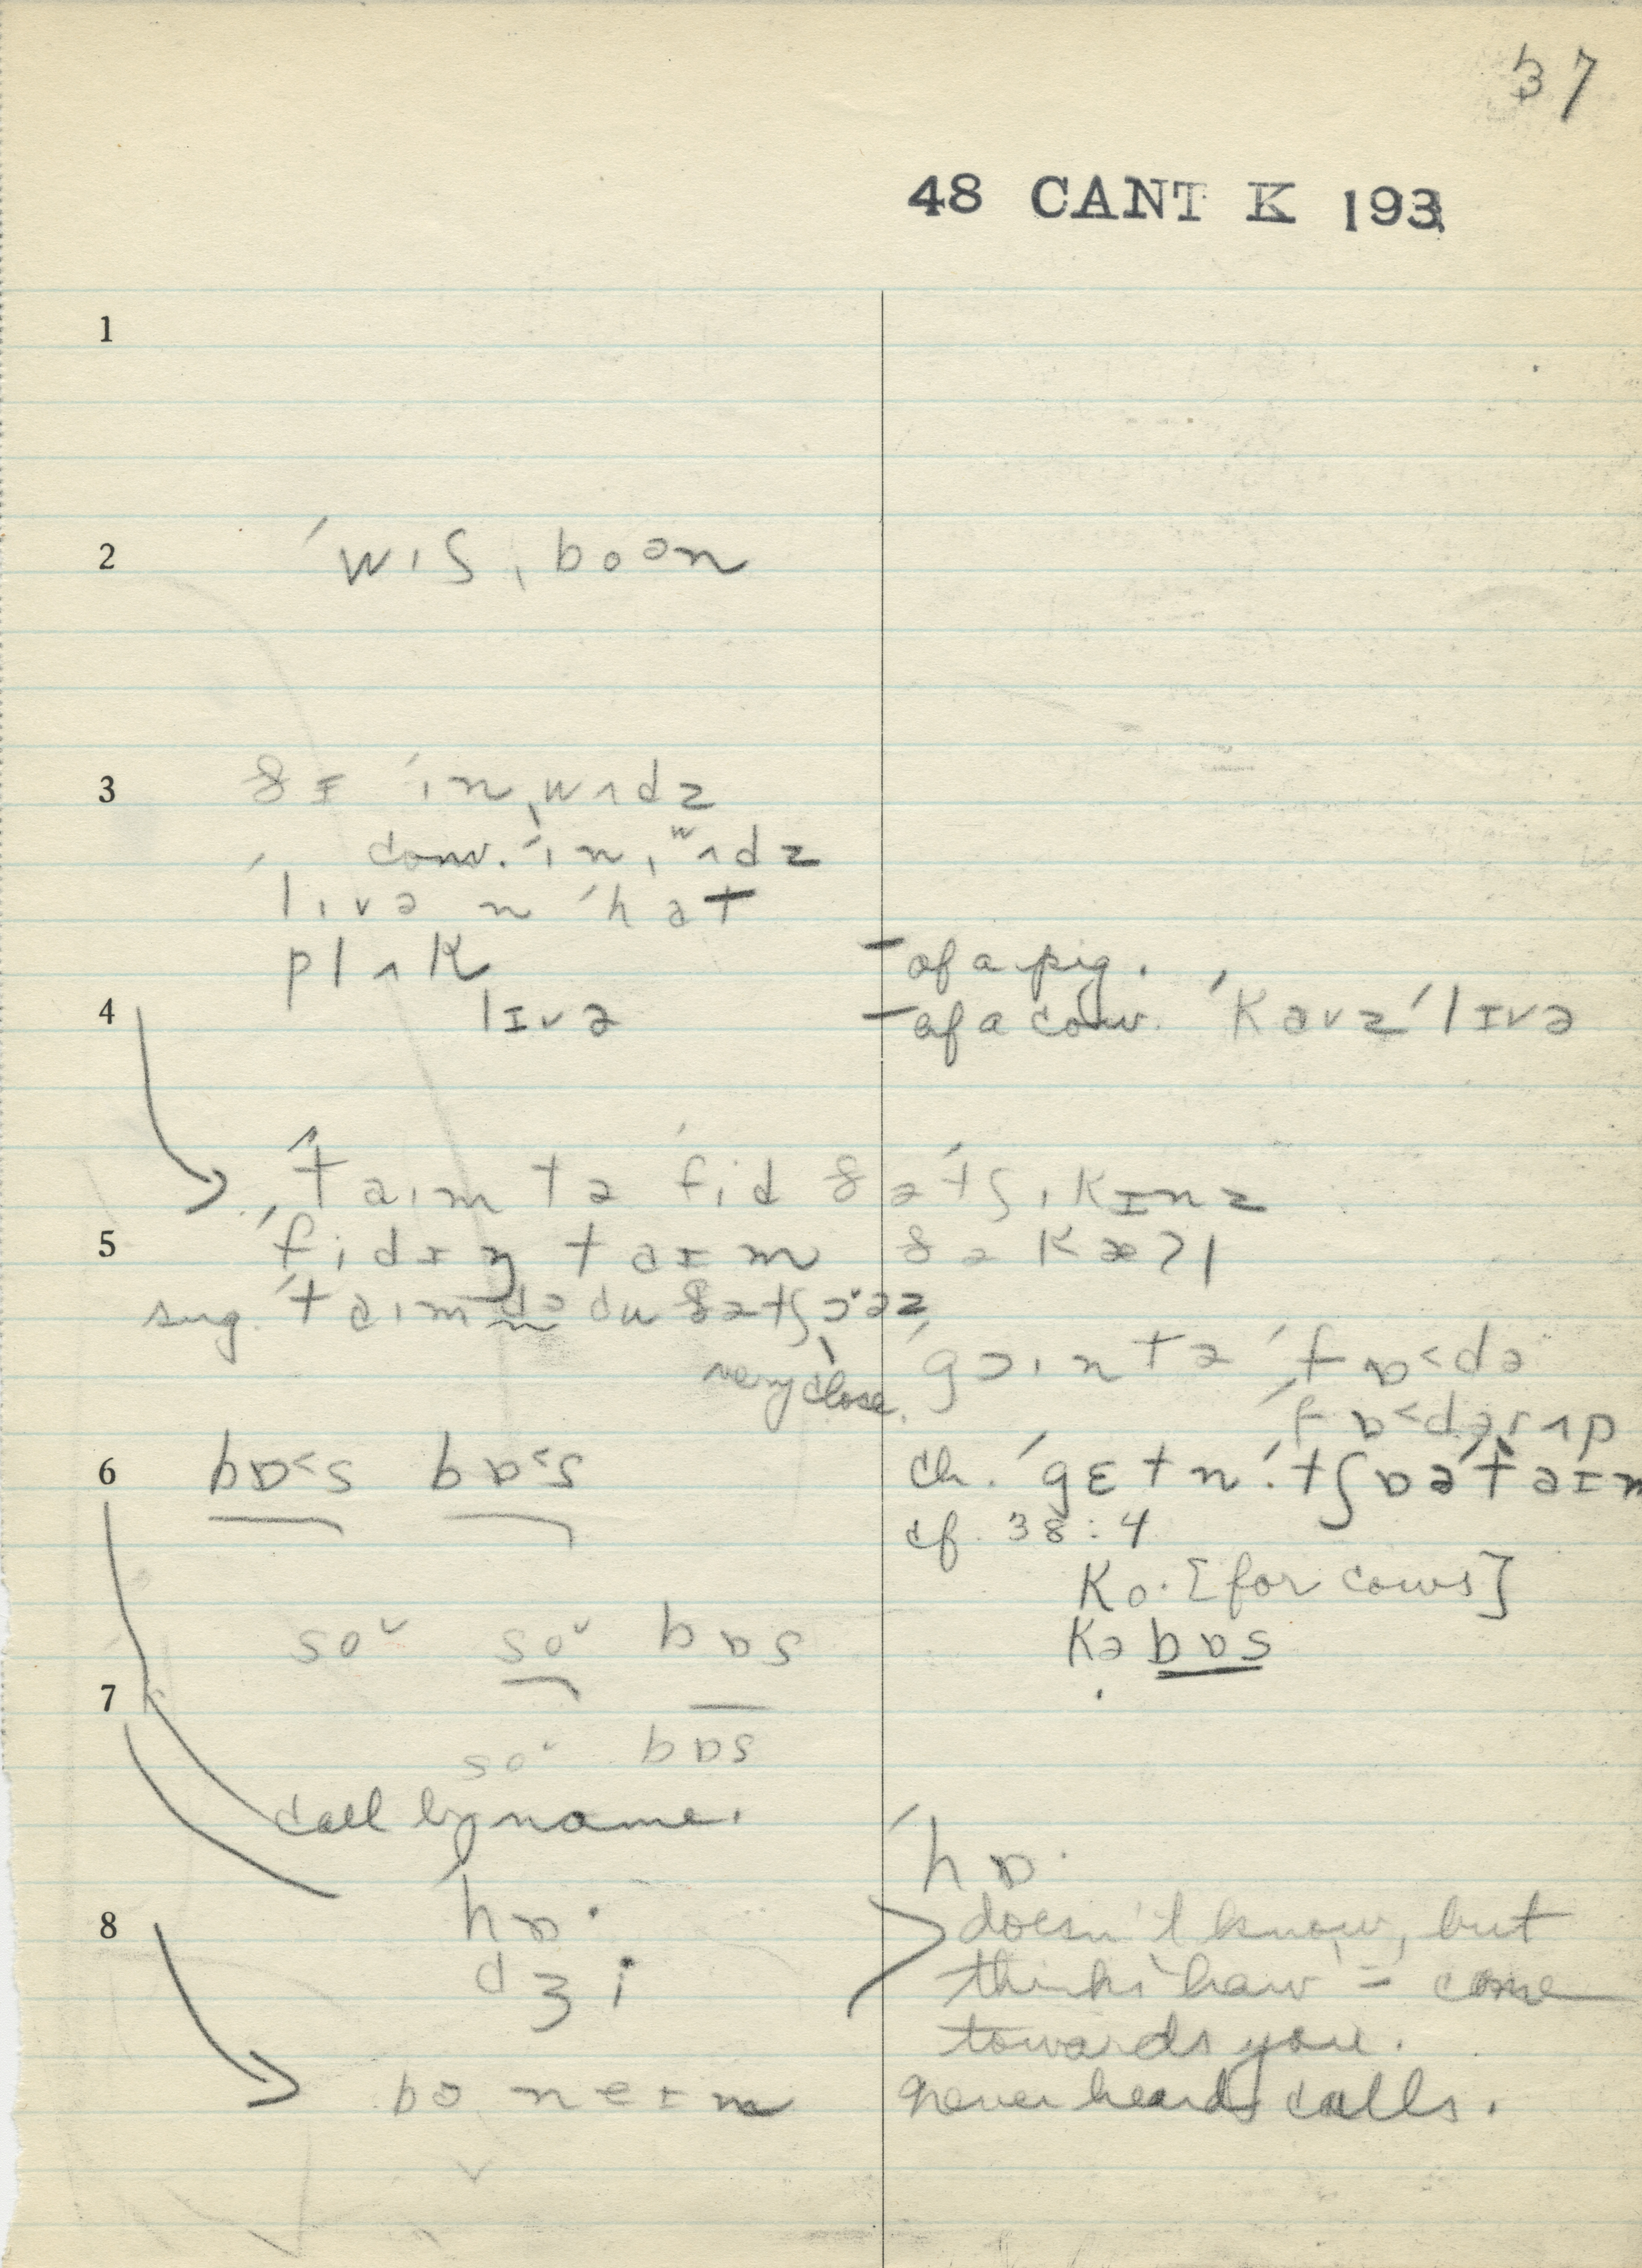 37
48 CANT K 193
1
2 ˈwɪʃˌboən
3 ðɪ ˈɪnˌwʌdz
conv. ˈɪnˌʷʌdz
ˈlɪvə n ˈhɑt
plʌk – of a pig.
4 lɪvə – of a cow. ˈkaʊz ˈlɪvə
ˈtaɪm tə ˈfid ðə ˈtʃɪkɪnz
5 ˈfidɪŋ taɪm ðə kæɫ
sug. ˈtaɪm də du ðə tʃɔˑəz
very close. ˈgɔɪn tə ˈfɒ<də
ˈfɒ<dərʌp
6 bɒ<s bɒ<s ch. ˈgɛtnˈtʃɒəˈtaɪm
cf. 38:4
ko· [for cows]
soˇ soˇ bɒs kə bɒs
7
so· bɒs
call by name.
ˈhɒ·
8 hɒ· doesn't know, but
dʒi thinks haw = come
towards you.
bə neɪm never heard calls.